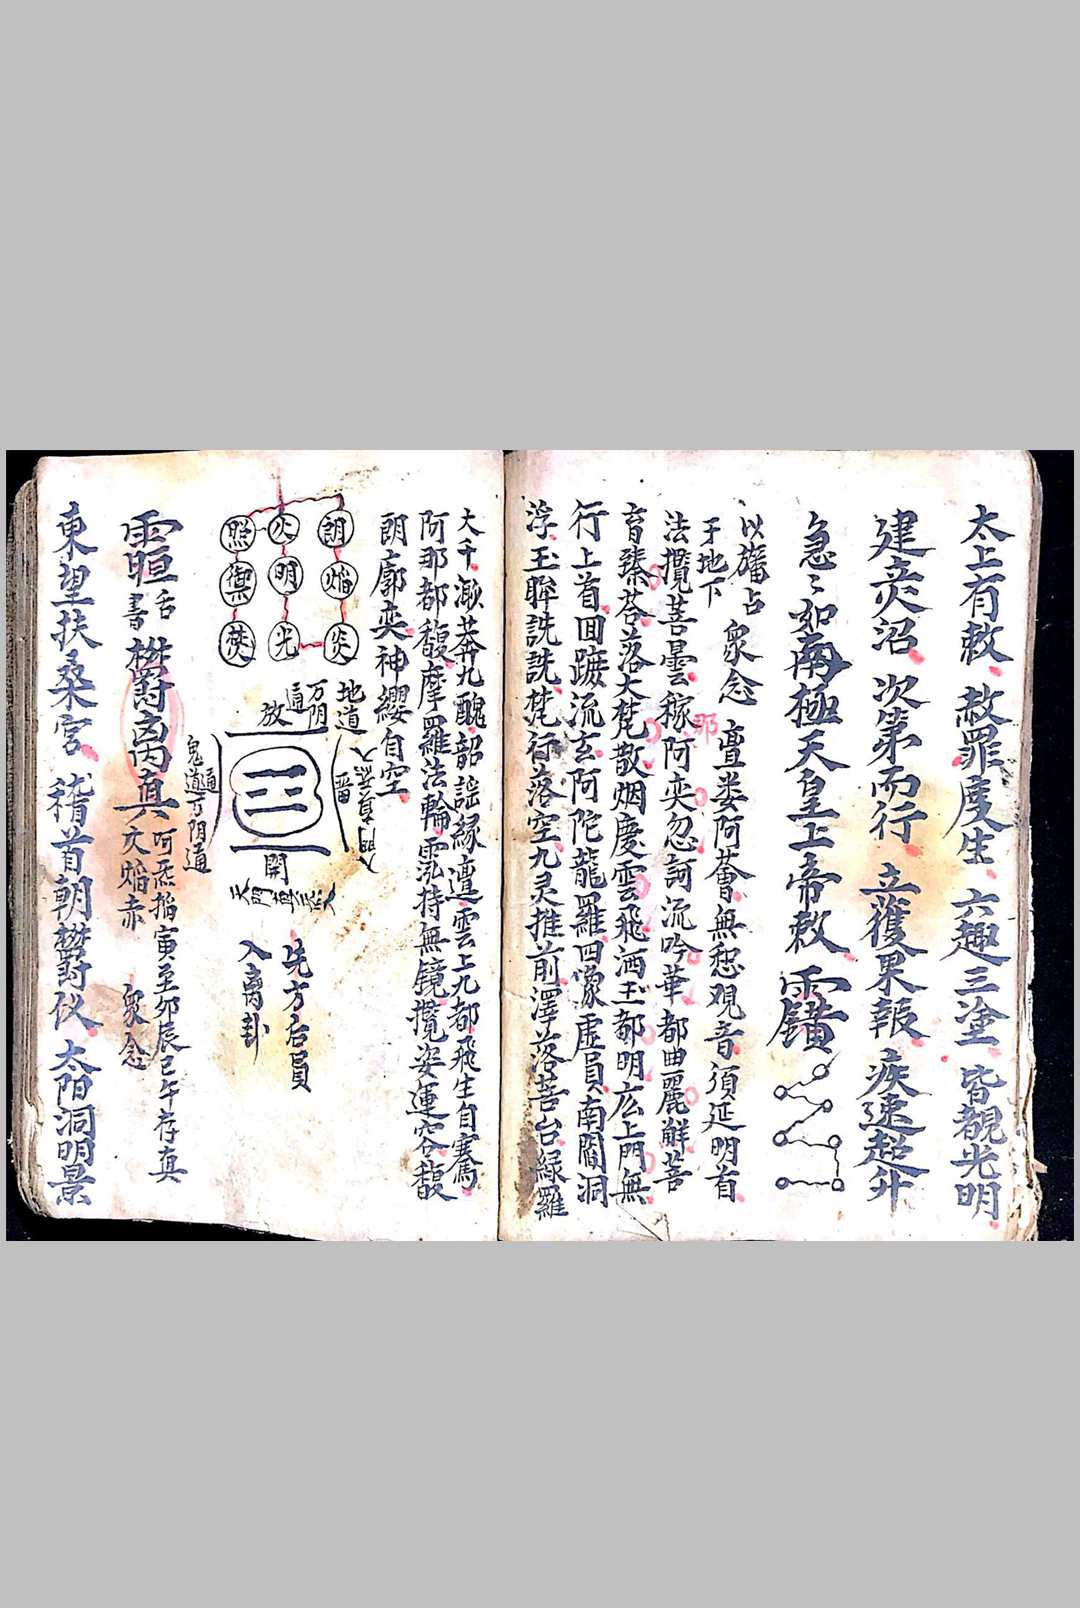 太上有敕赦罪度生六趣三塗皆覩光明
建炎沼次第而行立獲果報疾速超升
急〻如南極天皇上帝敕
以旛占
牙地下
衆念
亶娄阿薈無惒观音須延明首
法攬菩曇稼那阿奕忽訶流吟華都曲麗鮮菩
育臻荅落大梵散烟慶雲飛洒玉都明広上門無
行上首回蹠流玄阿陀龍羅四像虛員南閻洞
浮玉眸詵詵梵行落空九灵推前澤落菩台緑羅
大千濑莽九醜韶謡緣邅雲上九都飛生自騫
阿那都馥摩羅法輪霐持無镜攬姿運容馥
朗廓奕神纓自空
朗 焰 炎
火 明 光
照
地道
万阴
通
放
開
鬼道万阴通
先方后員
入离卦
舌
書
离真
寅至卯辰巳午存真
焰赤
衆念
東望扶桑宮稽首朝欝仪太阳洞明景